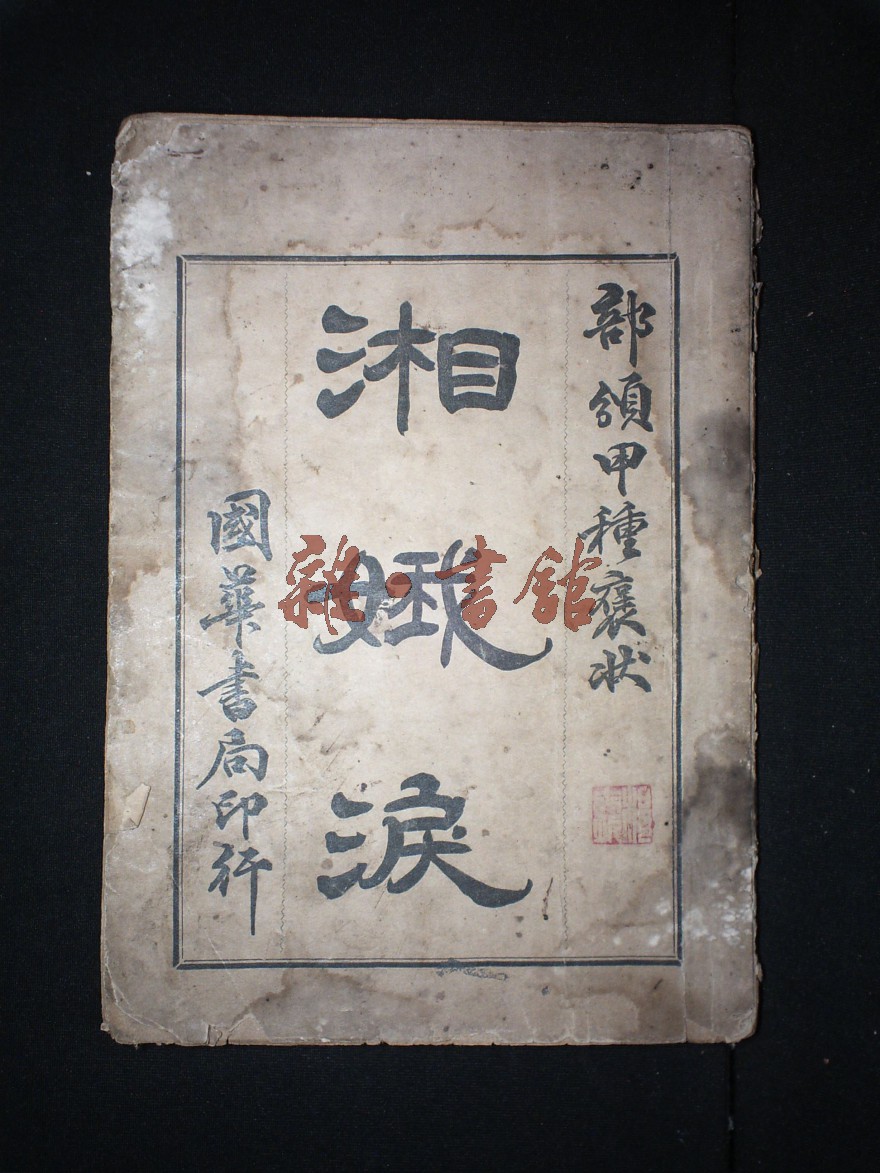 部頒甲種褒狀
湘娥淚
國華書局印行
雜·書館